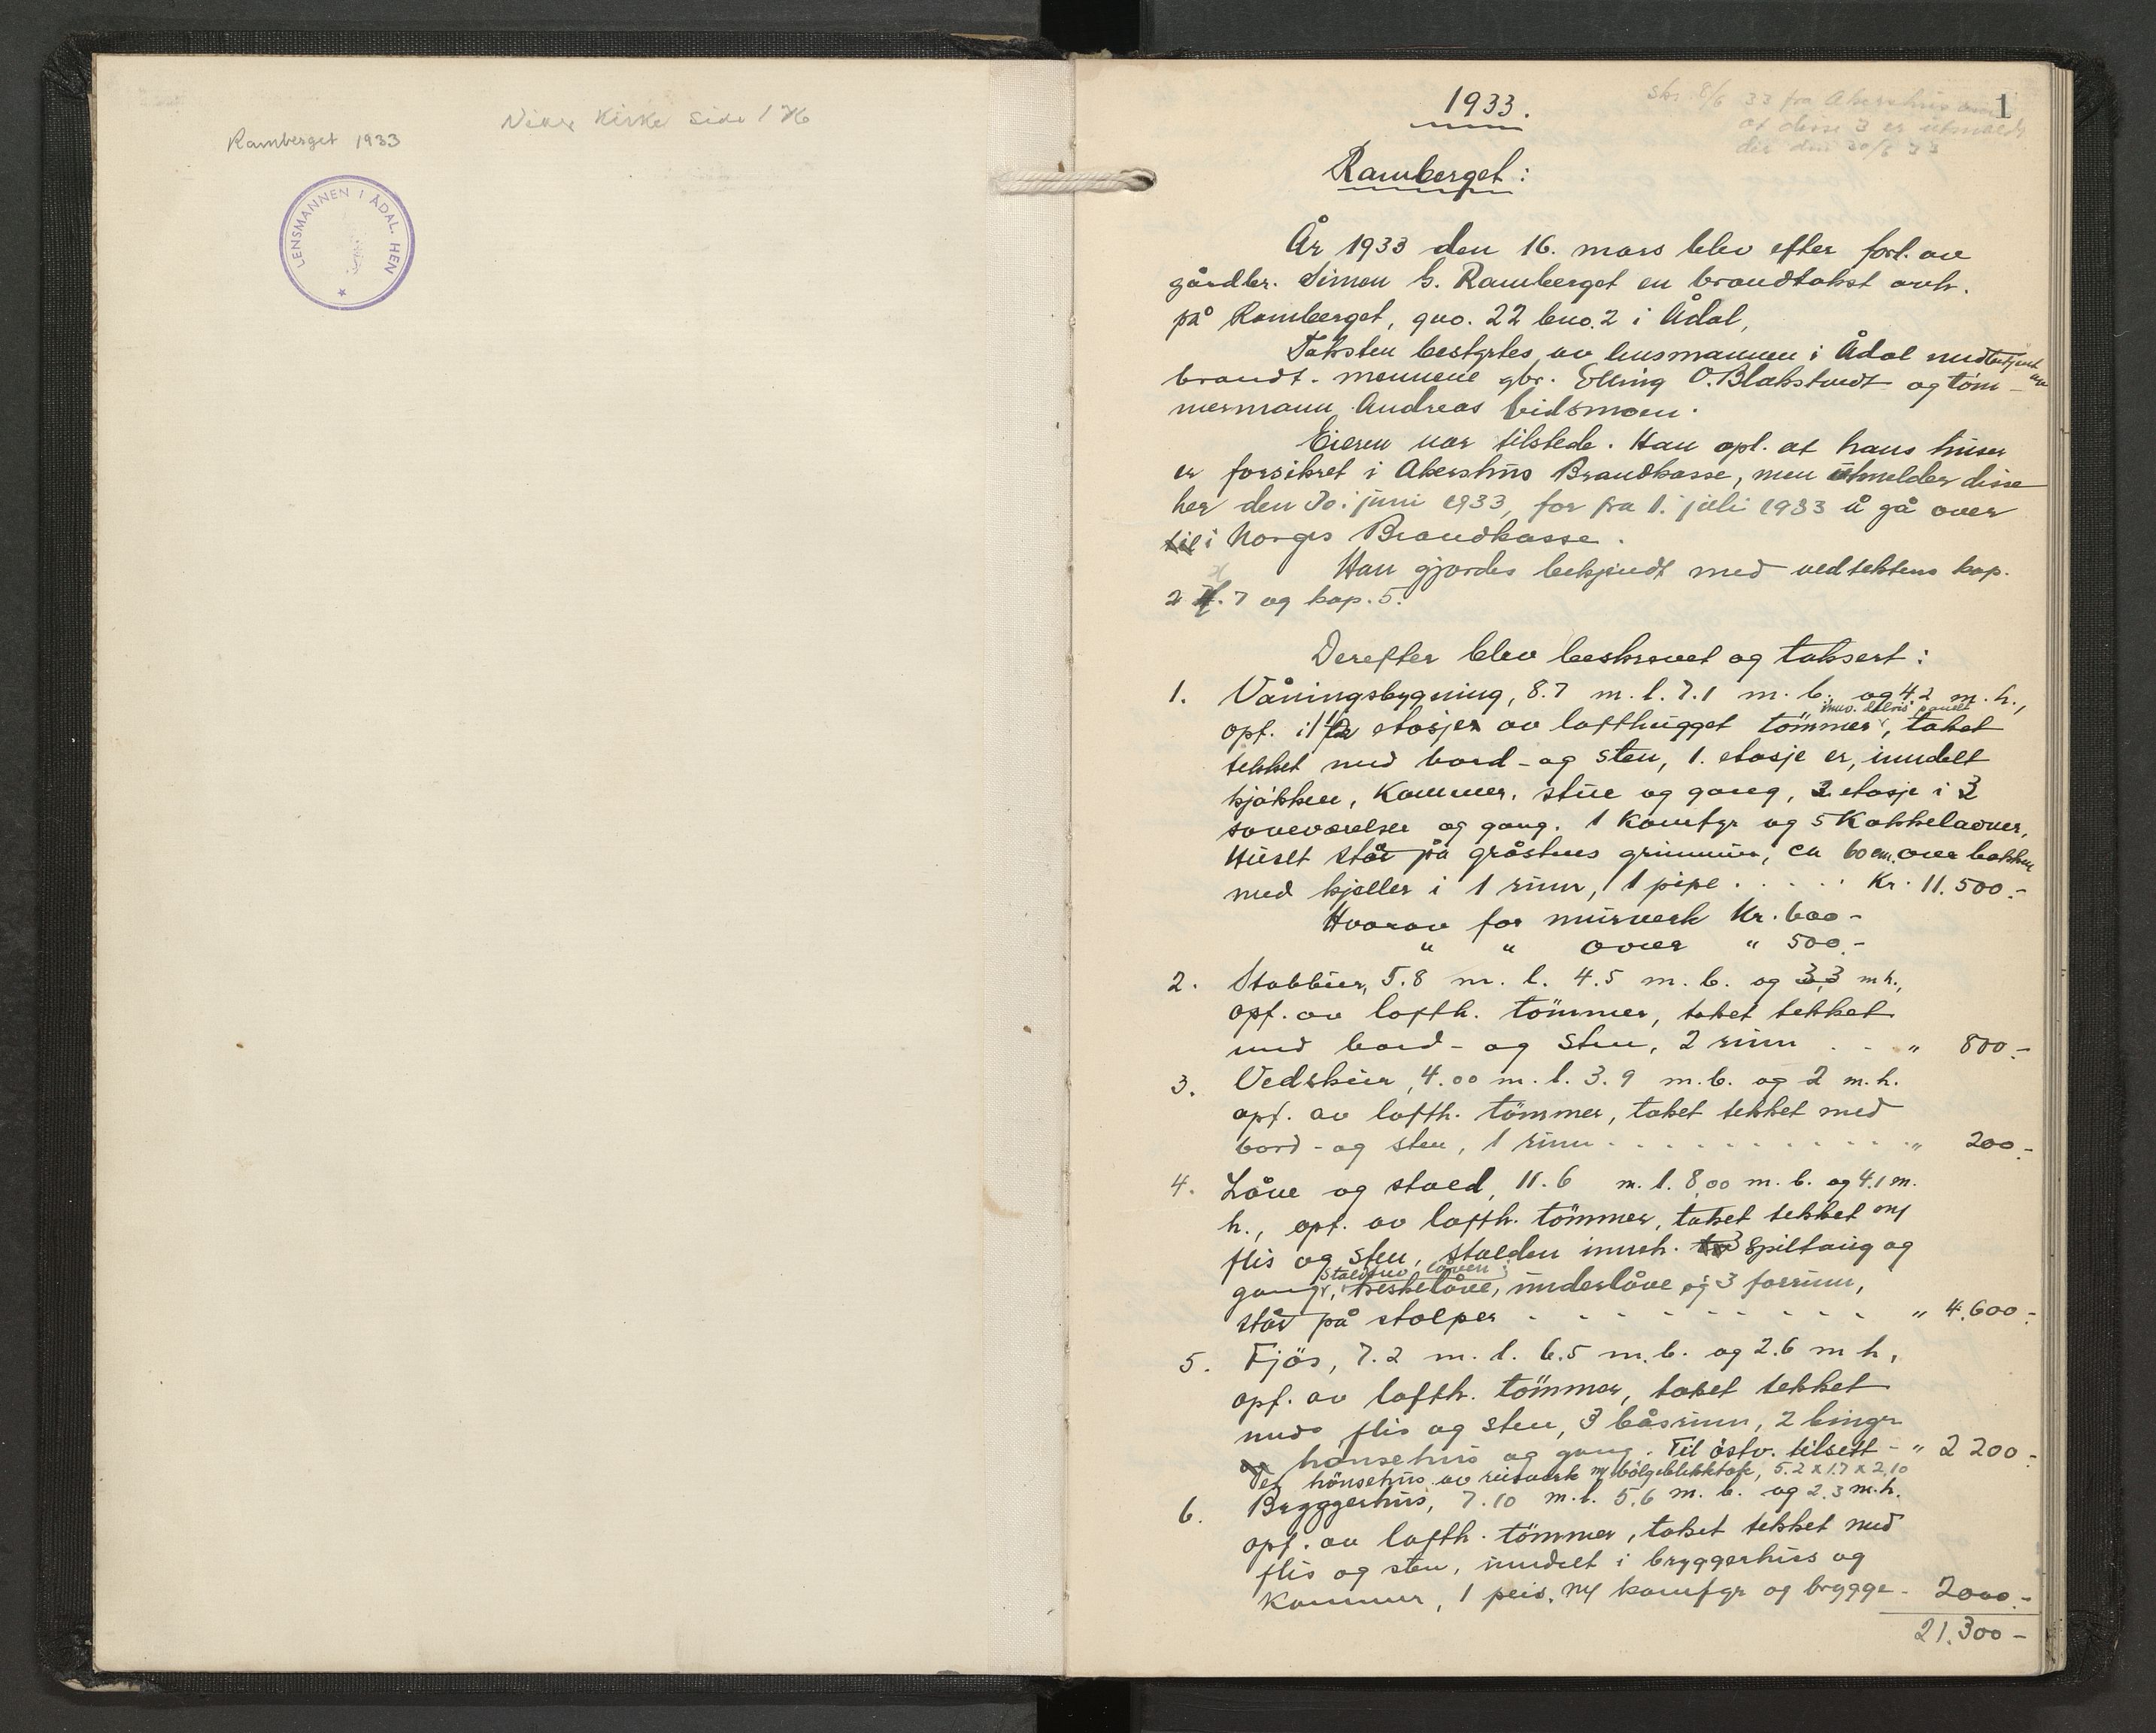 Ramberget 1933
Kirke Side 176
LENSMANNEN I ÅDAL. HEN
1
skr. 8/6 33 fra Akershus
at disse 3 er utmeldt
den 30/6 33
1933.
Ramberget:
År 1933 den 16. mars blev efter forl. av
gårdbr. Simen G. Ramberget en brandtakst avh.
på Ramberget, gno. 22 bno. 2 i Ådal,
Taksten bestyrtes av lensmannen i Ådal med
brandt. mennene gbr. Elling O. Blakstvedt og töm-
mermann Andreas Eidsmoen.
Eieren var tilstede. Han opl. at hans huser
er forsikret i Akershus Brandkasse, men utmelder disse
her den 30. juni 1933, for fra 1. juli 1933 å gå over
til i Norges Brandkasse.
Han gjordes bekjendt med vedtektens kap.
2 . 7 og kap. 5.
Derefter blev beskrevet og taksert:
1. Våningsbygning, 8.7 m. l. 7.1 m. b. og 4.2 m. h.,
innv. delvis panelt
opf. i 1 1/2 etasjer av lafthugget tömmer, taket
tekket med bord- og sten, 1. etasje er, inndelt
kjökken, Kammer, stue og gang, 2 etasje i 3
soveværelser og gang. 1 Komfyr og 5 Kakkelovner,
Huset står på gråstens grunnmur, ca 60 cm. over bakken
med kjeller i 1 rum, 1 pipe . . . . . Kr. 11.500.-
Hvorav for murverk Kr. 600-
" " ovner " 500.-
2. Stabbur, 5.8 m. l. 4.5 m. b. og 3,3 m h.,
opf. av lafth. tömmer, taket tekket
med bord- og sten, 2 rum . . " 800.-
3. Vedskur, 4.00 m. l. 3.9 m. b. og 2 m. h.
opf. av lafth. tömmer, taket tekket med
bord- og sten, 1 rum . . . . . . . . . . . . " 200.-
4. Låve og stald, 11.6 m. l. 8,00 m. b. og 4.1 m.
h., opf. av lafth. tömmer, taket tekket m/
flis og sten, stalden inneh. 3 spiltaug og
staldtrev, låven:
gang, treskelåve, underlåve og 3 forrum,
står på stolper . . . . . . . . . " 4.600-
5. Fjös, 7.2 m. l. 6.5 m. b. og 2.6 m h,
opf. av lafth. tömmer, taket tekket
med flis og sten, 3 båsrum, 2 binger
hönsehus og gang. Til östv. tilsett - " 2 200.-
der hönsehus av reisverk m/ bölgeblikktak, 5.2 x 1.7 x 2.10
6. Bryggerhus, 7.10 m. l. 5.6 m. b. og 2.3 m. h.
opf. av lafth. tömmer, taket tekket med
flis og sten, inndelt i bryggerhus og
Kammer, 1 peis, m/ komfyr og brygge - 2000.-
21.300-